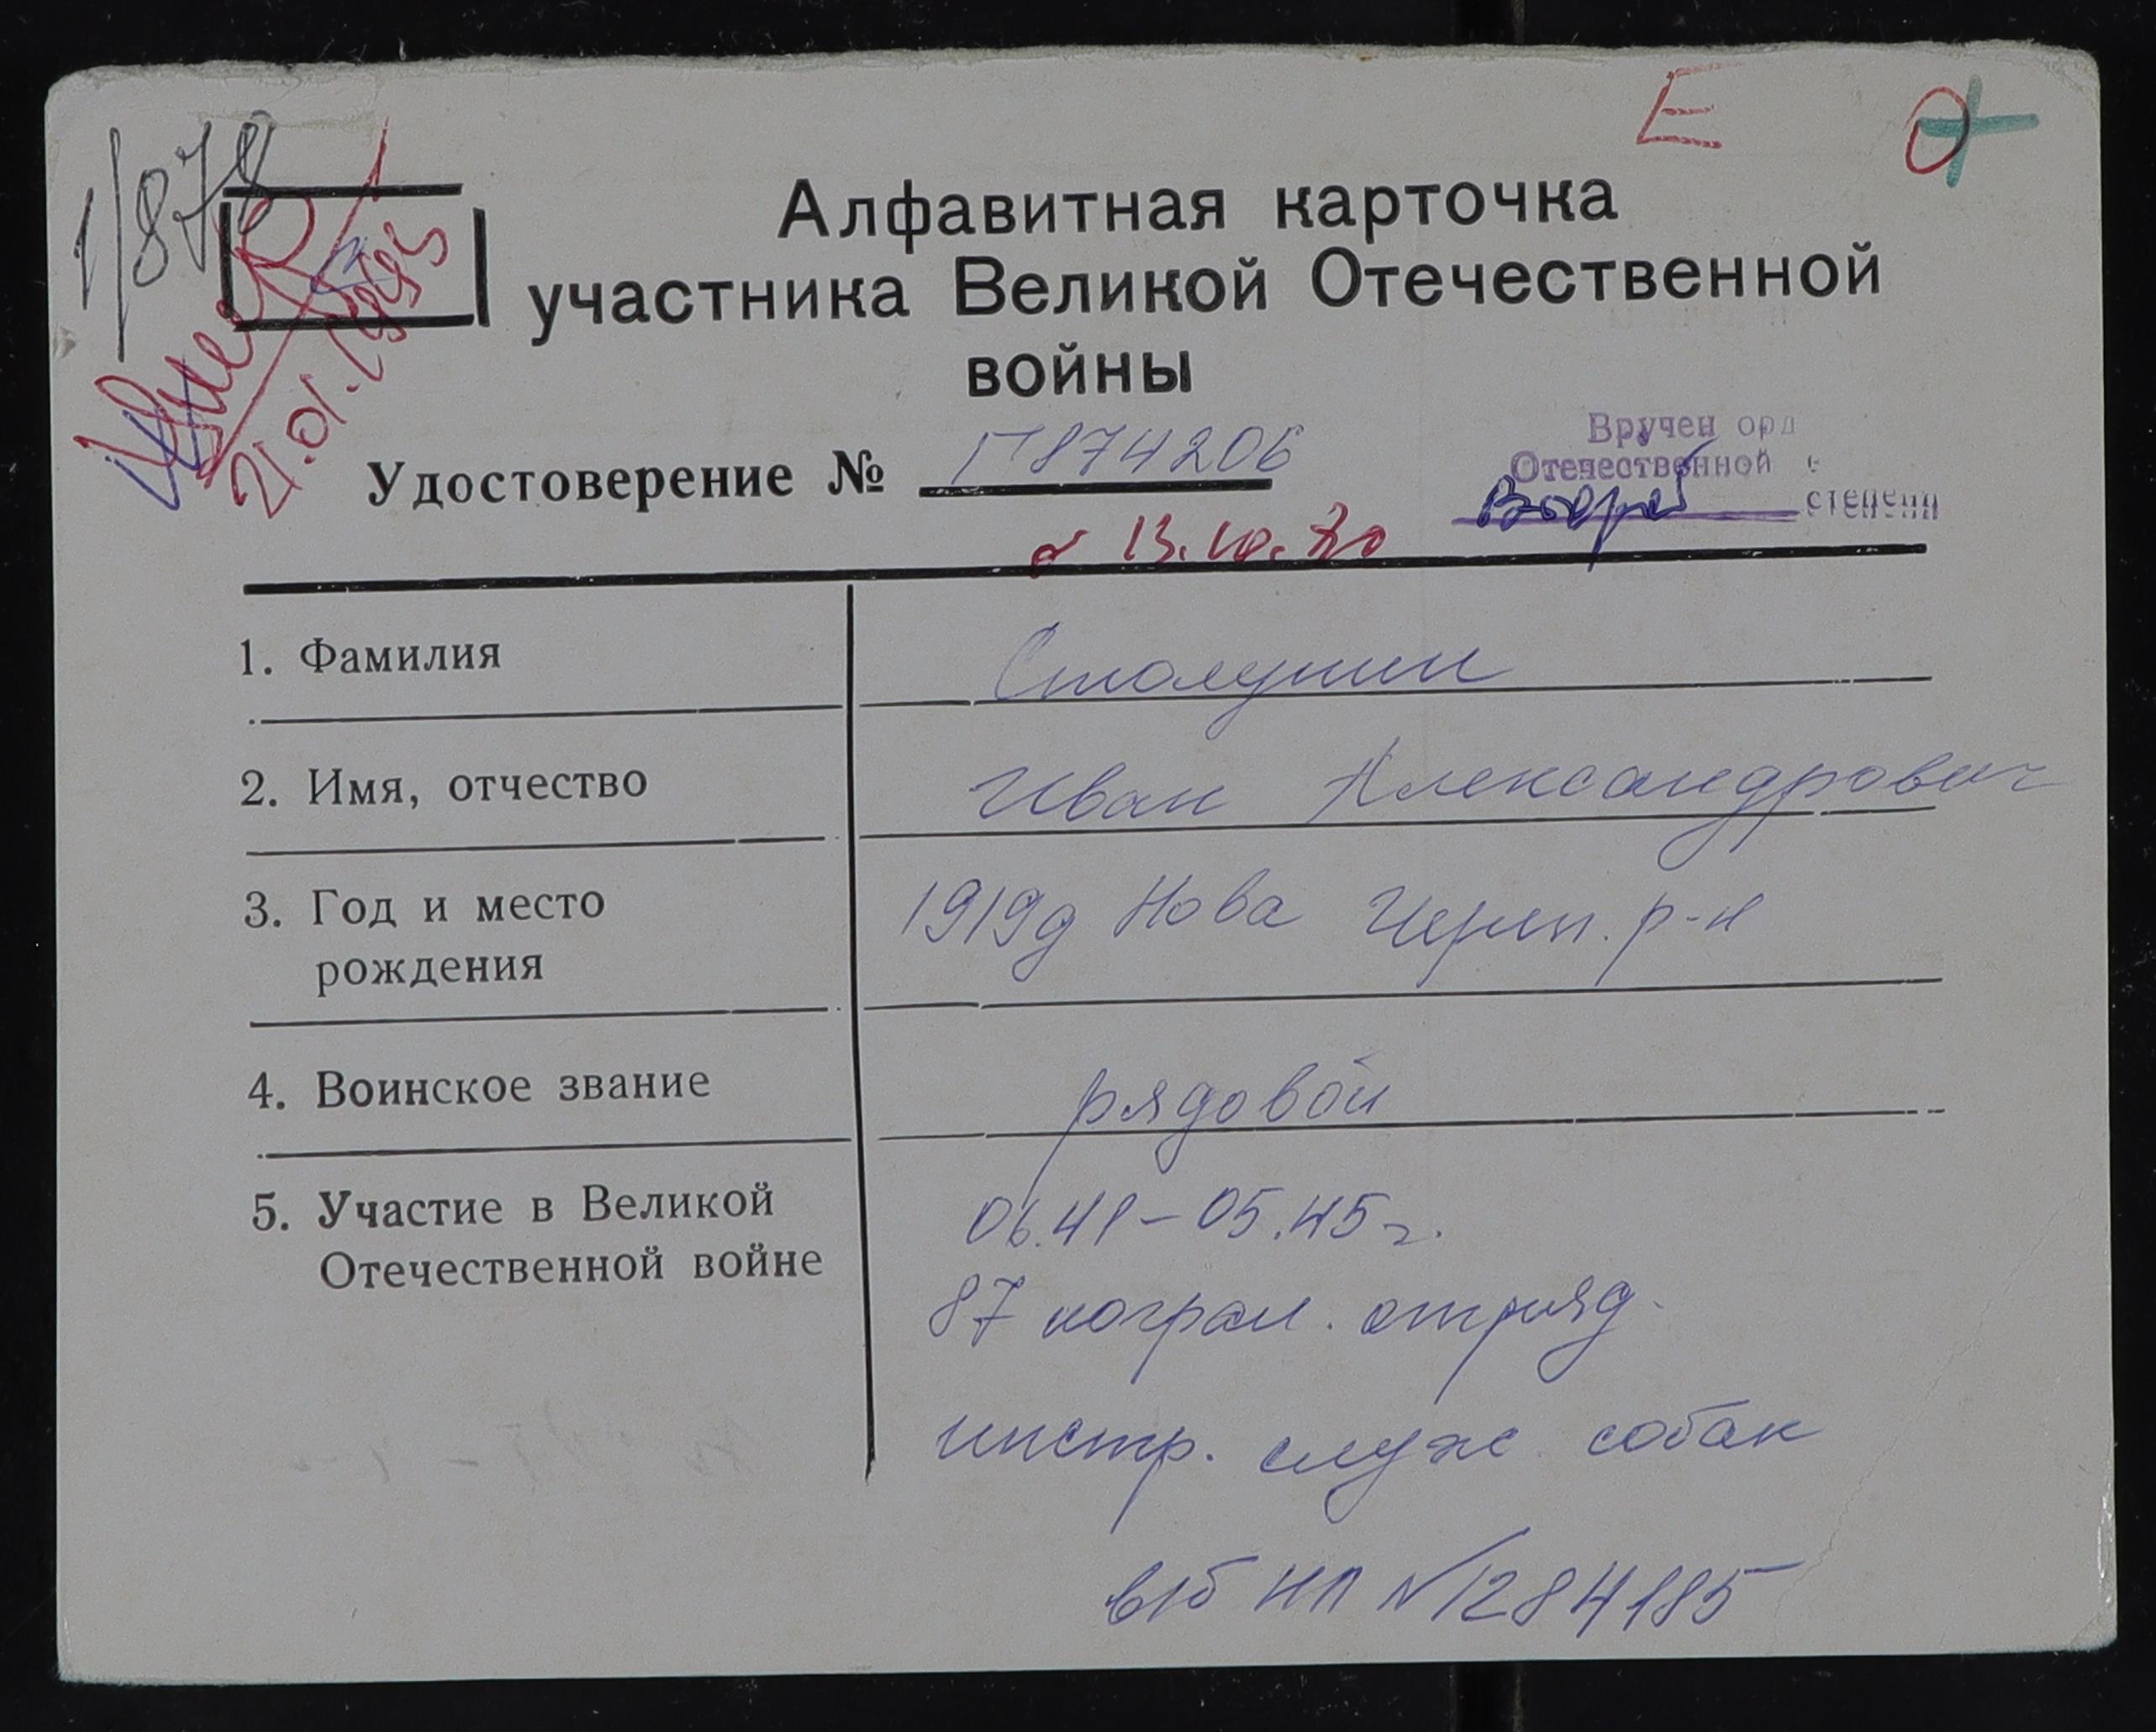 1/878
Е
О+
Умер
21.01.1995
Алфавитная карточка
участника Великой Отечественной
войны
Удостоверение № Г874206
Вручен орд
Отечественной
степени
13.10.80
1. Фамилия
Столунин
2. Имя, отчество Иван Александрович
3. Год и место рождения 1919д Нова Черем. р-н
4. Воинское звание рядовой
5. Участие в Великой
Отечественной войне
06.41-05.45г.
87 погран. отряд.
инстр. служ. собак
в/б НП №1284185